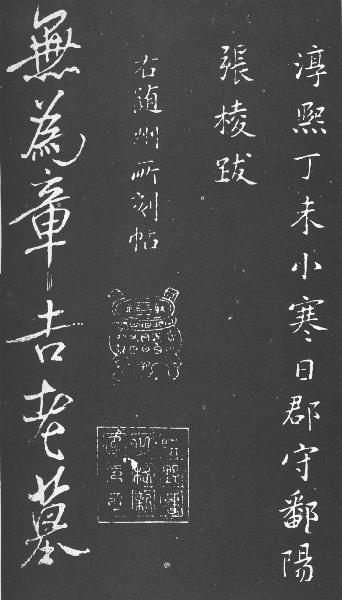 淳熙丁未小寒日郡守鄱陽
張棱跋
右隨州所刻帖
無為章吉老墓